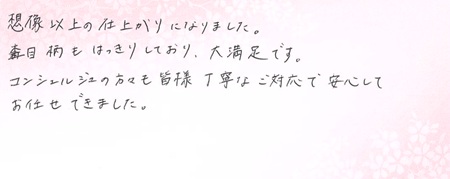 想像以上の仕上がりになりました。
番目柄もはっきりしており、大満足です。
コンシェルジュの方々も皆様丁寧なご対応で安心して
お任せできました。